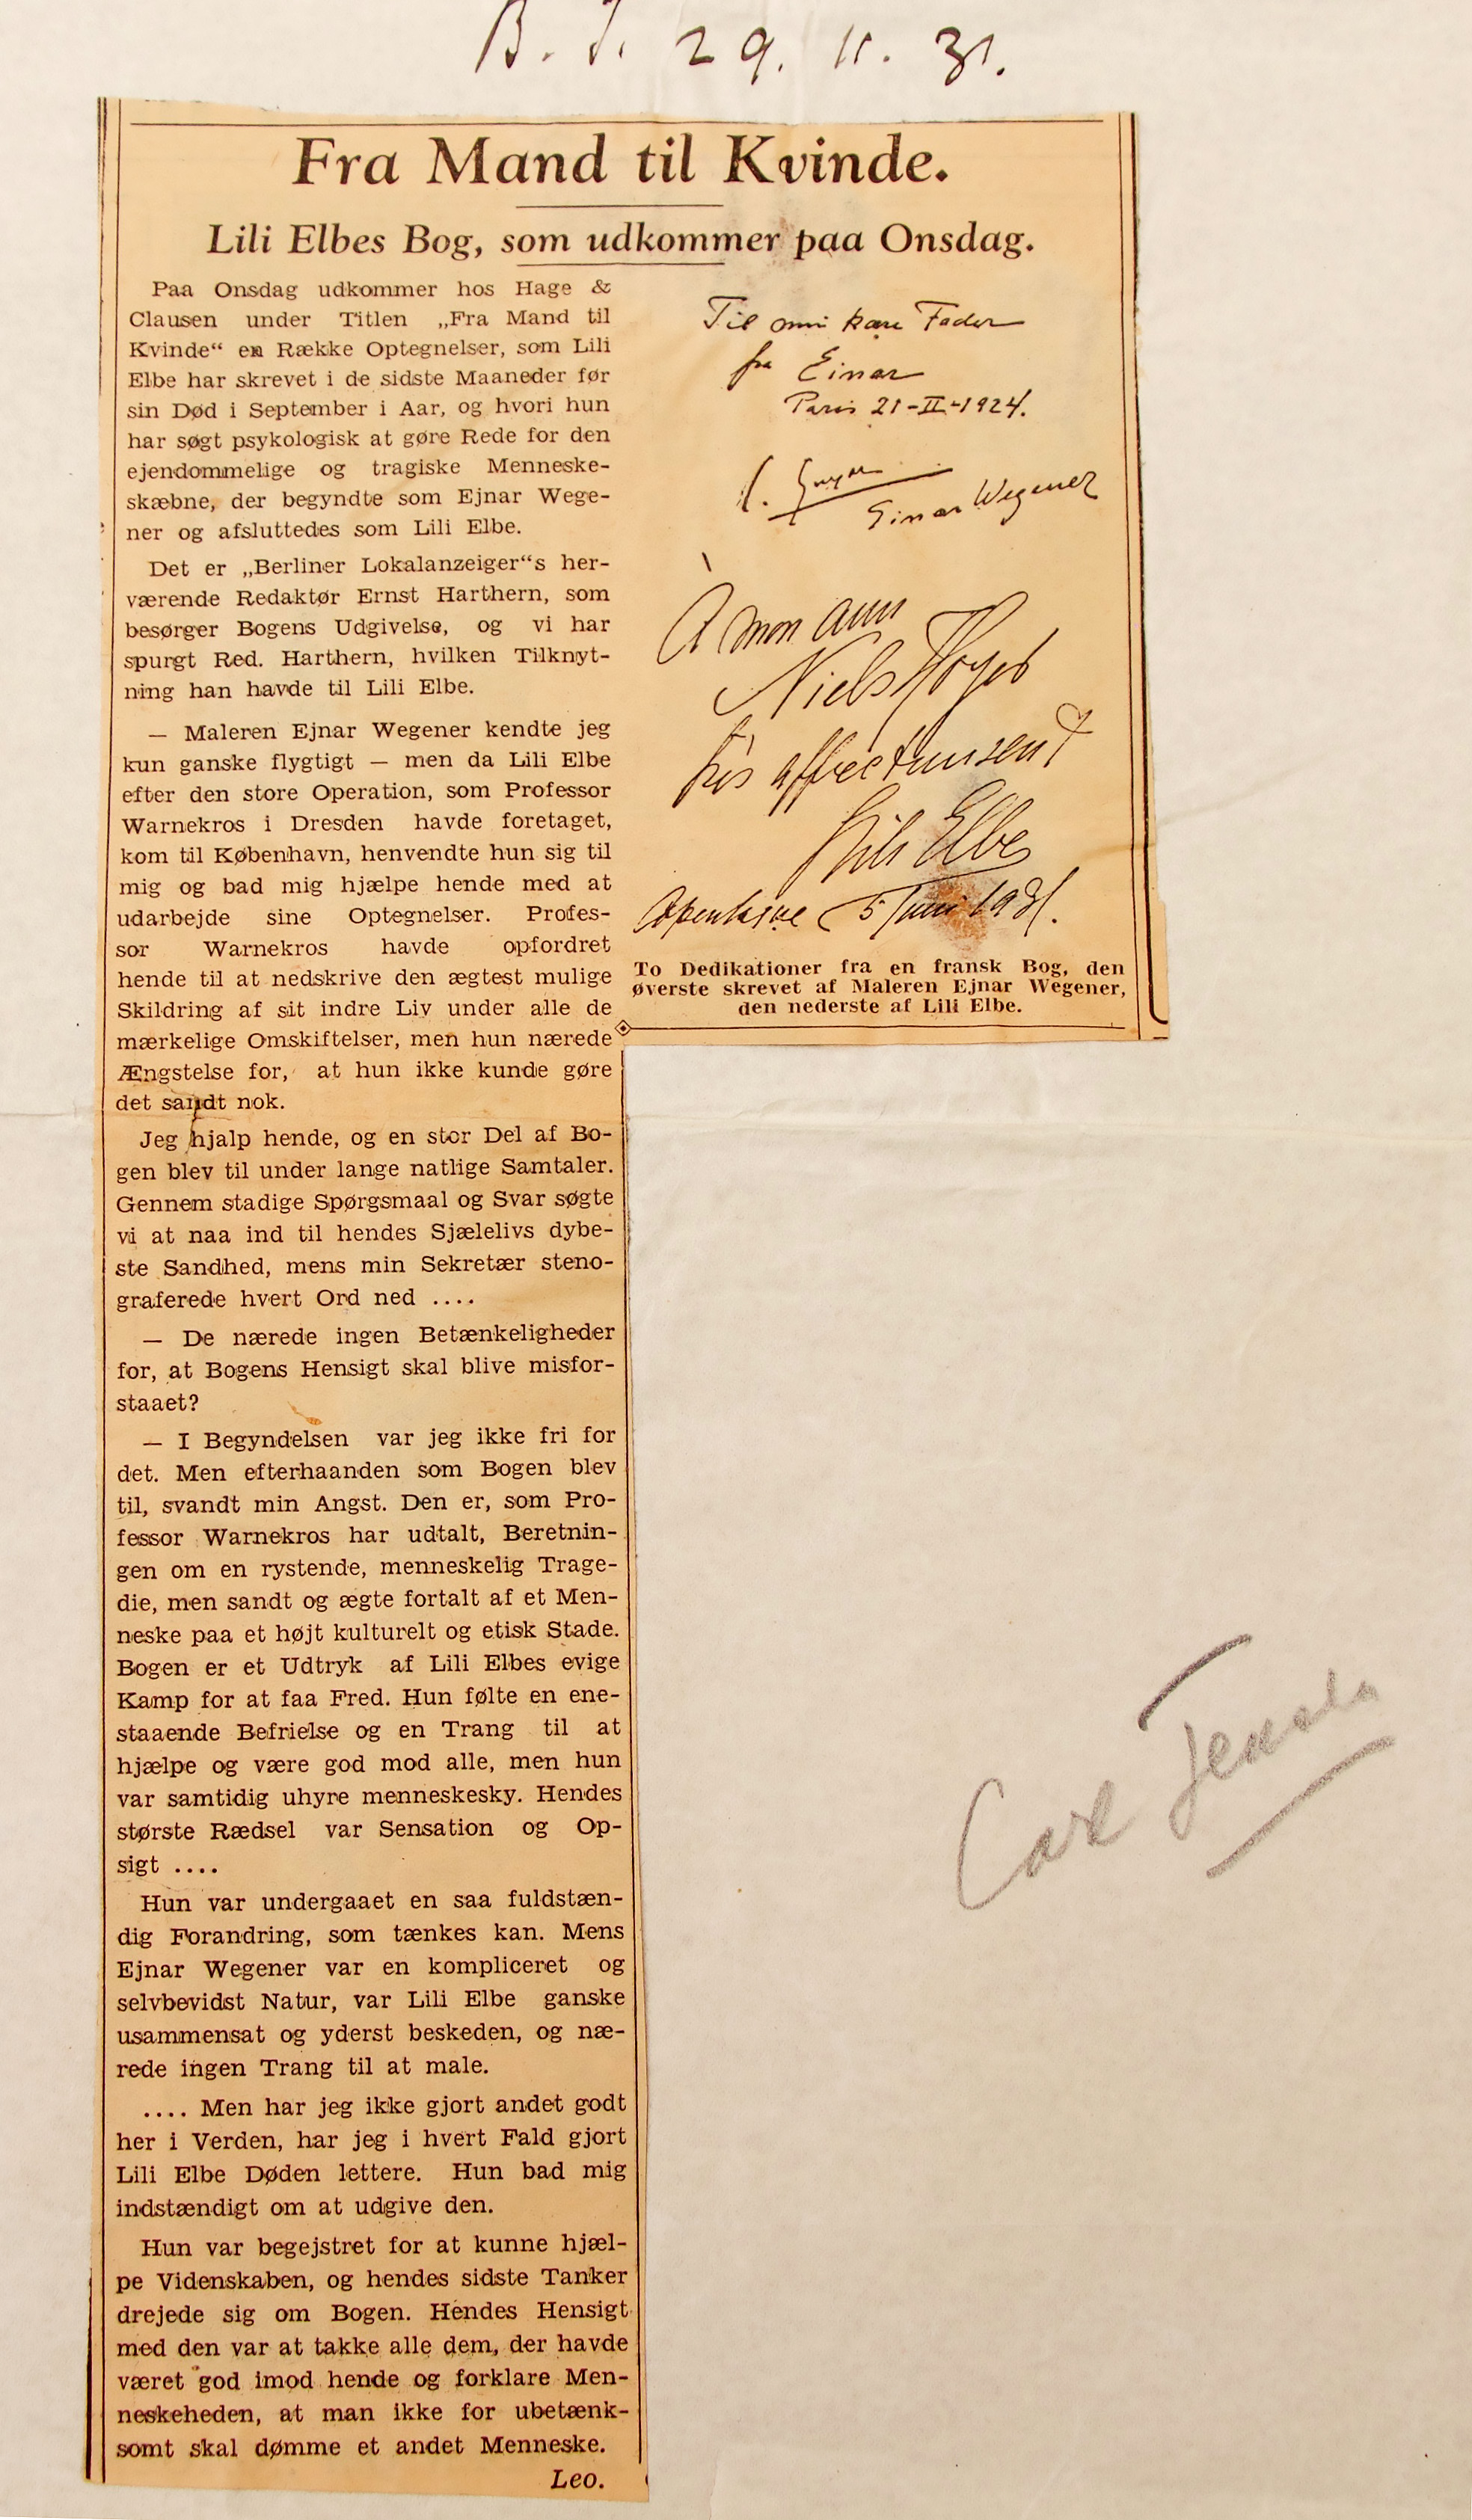 B. T. 29. 11. 31.
Fra Mand til Kvinde.
Lili Elbes Bog, som udkommer paa Onsdag.
Paa Onsdag udkommer hos Hage &
Clausen under Titlen „Fra Mand til
Kvinde“ en Række Optegnelser, som Lili
Elbe har skrevet i de sidste Maaneder før
sin Død i September i Aar, og hvori hun
har søgt psykologisk at gøre Rede for den
ejendommelige og tragiske Menneske-
skæbne, der begyndte som Ejnar Wege-
ner og afsluttedes som Lili Elbe.
Det er „Berliner Lokalanzeiger“s her-
værende Redaktør Ernst Harthern, som
besørger Bogens Udgivelse, og vi har
spurgt Red. Harthern, hvilken Tilknyt-
ning han havde til Lili Elbe.
— Maleren Ejnar Wegener kendte jeg
kun ganske flygtigt — men da Lili Elbe
efter den store Operation, som Professor
Warnekros i Dresden havde foretaget,
kom til København, henvendte hun sig til
mig og bad mig hjælpe hende med at
udarbejde sine Optegnelser. Profes-
sor Warnekros havde opfordret
hende til at nedskrive den ægtest mulige
Skildring af sit indre Liv under alle de
mærkelige Omskiftelser, men hun nærede
Ængstelse for, at hun ikke kunde gøre
det sandt nok.
Jeg hjalp hende, og en stor Del af Bo-
gen blev til under lange natlige Samtaler.
Gennem stadige Spørgsmaal og Svar søgte
vi at naa ind til hendes Sjælelivs dybe-
ste Sandhed, mens min Sekretær steno-
graferede hvert Ord ned ....
— De nærede ingen Betænkeligheder
for, at Bogens Hensigt skal blive misfor-
staaet?
— I Begyndelsen var jeg ikke fri for
det. Men efterhaanden som Bogen blev
til, svandt min Angst. Den er, som Pro-
fessor Warnekros har udtalt, Beretnin-
gen om en rystende, menneskelig Trage-
die, men sandt og ægte fortalt af et Men-
neske paa et højt kulturelt og etisk Stade.
Bogen er et Udtryk af Lili Elbes evige
Kamp for at faa Fred. Hun følte en ene-
staaende Befrielse og en Trang til at
hjælpe og være god mod alle, men hun
var samtidig uhyre menneskesky. Hendes
største Rædsel var Sensation og Op-
sigt ....
Hun var undergaaet en saa fuldstæn-
dig Forandring, som tænkes kan. Mens
Ejnar Wegener var en kompliceret og
selvbevidst Natur, var Lili Elbe ganske
usammensat og yderst beskeden, og næ-
rede ingen Trang til at male.
.... Men har jeg ikke gjort andet godt
her i Verden, har jeg i hvert Fald gjort
Lili Elbe Døden lettere. Hun bad mig
indstændigt om at udgive den.
Hun var begejstret for at kunne hjæl-
pe Videnskaben, og hendes sidste Tanker
drejede sig om Bogen. Hendes Hensigt
med den var at takke alle dem, der havde
været god imod hende og forklare Men-
neskeheden, at man ikke for ubetænk-
somt skal dømme et andet Menneske.
Leo.
Til min kære Fader
fra Einar
Paris 21-II-1924.
Einar Wegener
À mon ami
Niels Hoyer
très affectueusement
Lili Elbe
Copenhague 5 Juni 1931.
To Dedikationer fra en fransk Bog, den
øverste skrevet af Maleren Ejnar Wegener,
den nederste af Lili Elbe.
Carl